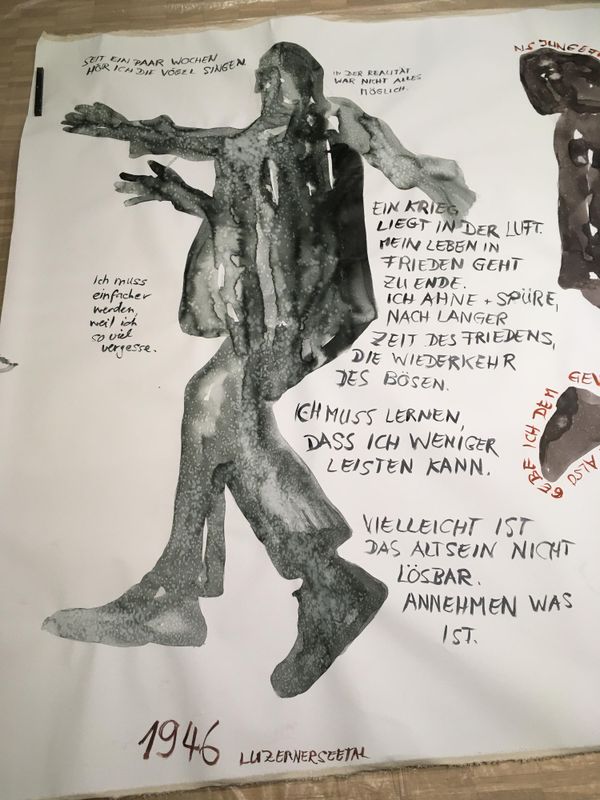 SEIT EIN PAAR WOCHEN
HÖR ICH DIE VÖGEL SINGEN.
IN DER REALITÄT
WAR NICHT ALLES
MÖGLICH.
EIN KRIEG
LIEGT IN DER LUFT.
MEIN LEBEN IN
FRIEDEN GEHT
ZU ENDE.
ICH AHNE + SPÜRE,
NACH LANGER
ZEIT DES FRIEDENS,
DIE WIEDERKEHR
DES BÖSEN.
Ich muss
einfacher
werden,
weil ich
so viel
vergesse.
ICH MUSS LERNEN,
DASS ICH WENIGER
LEISTEN KANN.
VIELLEICHT IST
DAS ALTSEIN NICHT
LÖSBAR.
ANNEHMEN WAS
IST.
1946 LUZERNERSEETAL
GEBE ICH DEM